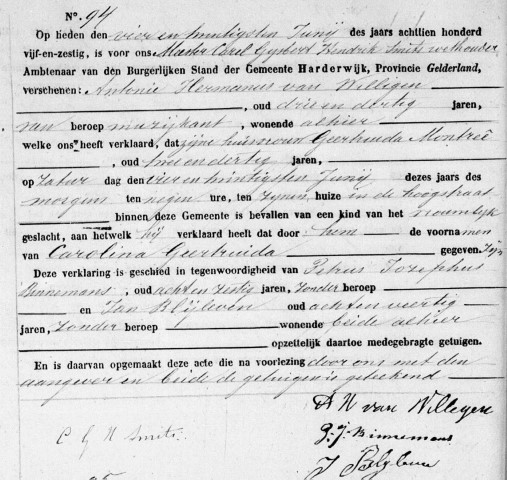 No. 94
Op heden den vier en twintigsten Junij des jaars achttien honderd
vijf-en-zestig, is voor ons Marten Carel Gysbert Hendrik Smits wethouder
Ambtenaar van den Burgerlijken Stand der Gemeente Harderwijk, Provincie Gelderland,
verschenen: Antonie Hermanus van Willigen
, oud drie en dertig jaren,
van beroep muzijkant, wonende alhier
welke ons heeft verklaard, dat zijne huisvrouw Geertruida Montreé
, oud twee en dertig jaren,
op Zaturdag den vier en twintigsten Junij dezes jaars des
morgens ten negen ure, ten zynen huize in de hoogstraat
binnen deze Gemeente is bevallen van een kind van het vrouwelijk
geslacht, aan hetwelk hij verklaard heeft dat door hem de voornamen
van Carolina Geertruida gegeven zijn
Deze verklaring is geschied in tegenwoordigheid van Petrus Josephus
Binnemans, oud acht en zestig jaren, zonder beroep
en Jan Blijleven oud acht en veertig
jaren, zonder beroep wonende beide alhier
opzettelijk daartoe medegebragte getuigen.
En is daarvan opgemaakt deze acte die na voorlezing door ons met den
aangever en beide de getuigen is geteekend
A H van Willegen
C G H Smits
P. J. Binnemans
J Blyleven